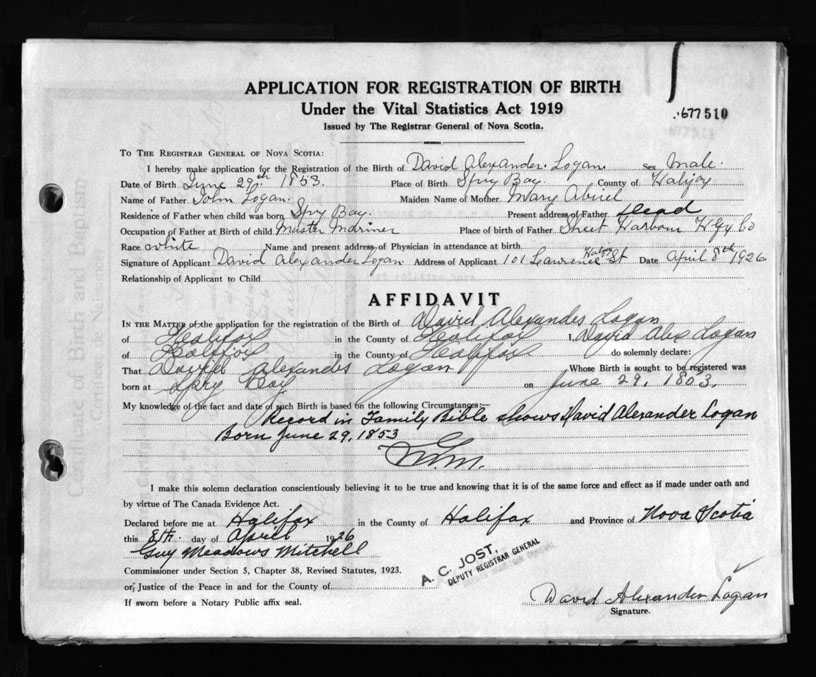 APPLICATION FOR REGISTRATION OF BIRTH
Under the Vital Statistics Act 1919
Issued by The Registrar General of Nova Scotia.
677510
To The Registrar General of Nova Scotia:
I hereby make application for the Registration of the Birth of David Alexander Logan Sex Male
Date of Birth June 29th 1853. Place of Birth Spry Bay County of Halifax
Name of Father John Logan. Maiden Name of Mother Mary
Residence of Father when child was born Spry Bay. Present address of Father dead
Occupation of Father at Birth of child Master Mariner Place of birth of Father Sheet Harbour Co
Race white Name and present address of Physician in attendance at birth
Signature of Applicant David Alexander Logan Address of Applicant 101 Lawrence St Date April 8th 1926
Relationship of Applicant to Child
AFFIDAVIT
In the Matter of the application for the registration of the Birth of David Alexander Logan
of Halifax in the County of Halifax I, David Alex Logan
of Halifax in the County of Halifax do solemnly declare:
That David Alexander Logan Whose Birth is sought to be registered was
born at Spry Bay on June 29, 1853.
My knowledge of the fact and date of such Birth is based on the following Circumstances:—
Record in Family Bible shows David Alexander Logan
Born June 29, 1853
G.M.M.
I make this solemn declaration conscientiously believing it to be true and knowing that it is of the same force and effect as if made under oath and
by virtue of The Canada Evidence Act.
Declared before me at Halifax in the County of Halifax and Province of Nova Scotia
this 8th day of April 1926
Guy Meadows Mitchell
Commissioner under Section 5, Chapter 38, Revised Statutes, 1923.
or, Justice of the Peace in and for the County of
If sworn before a Notary Public affix seal.
A. C. JOST,
DEPUTY REGISTRAR GENERAL
David Alexander Logan
Signature.